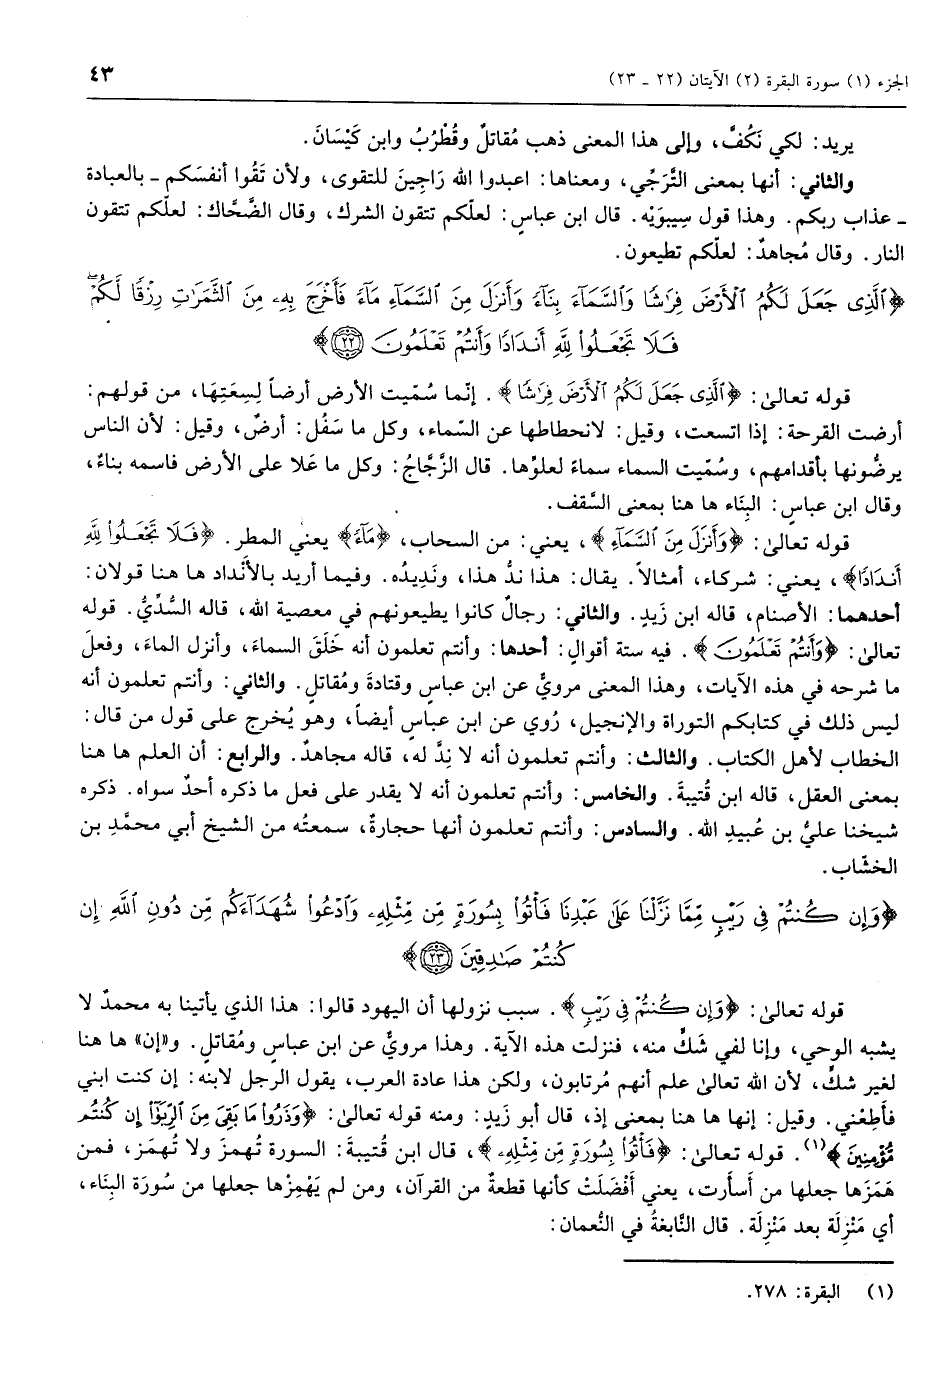 الجزء (١) سورة البقرة (٢) الآيتان (٢٢ ـ ٢٣)
٤٣
يريد: لكي نَكُفَّ، وإلى هذا المعنى ذهب مُقاتلٌ وقُطْرُبُ وابن كَيْسَانَ.
والثاني: أنها بمعنى التَّرَجِّي، ومعناها: اعبدوا الله رَاجِينَ للتقوى، ولأن تَقُوا أنفسَكم ـ بالعبادة
ـ عذاب ربكم. وهذا قول سِيبَوَيْه. قال ابن عباسٍ: لعلّكم تتقون الشرك، وقال الضَّحَّاك: لعلّكم تتقون
النار. وقال مُجاهدٌ: لعلّكم تطيعون.
﴿ٱلَّذِى جَعَلَ لَكُمُ ٱلْأَرْضَ فِرَٰشًا وَٱلسَّمَآءَ بِنَآءً وَأَنزَلَ مِنَ ٱلسَّمَآءِ مَآءً فَأَخْرَجَ بِهِۦ مِنَ ٱلثَّمَرَٰتِ رِزْقًا لَّكُمْ ۖ
فَلَا تَجْعَلُوا۟ لِلَّهِ أَندَادًا وَأَنتُمْ تَعْلَمُونَ ﴿٢٢﴾﴾
قوله تعالىٰ: ﴿ٱلَّذِى جَعَلَ لَكُمُ ٱلْأَرْضَ فِرَٰشًا﴾. إنّما سُمّيت الأرض أرضاً لِسِعَتِهَا، من قولهم:
أرضت القرحة: إذا اتسعت، وقيل: لانحطاطها عن السّماء، وكل ما سَفُل: أرضٌ، وقيل: لأن الناس
يرضُّونها بأقدامهم، وسُمّيت السماء سماءً لعلوّها. قال الزَّجَّاجُ: وكل ما عَلا على الأرض فاسمه بناءٌ،
وقال ابن عباسٍ: البِنَاء ها هنا بمعنى السَّقف.
قوله تعالىٰ: ﴿وَأَنزَلَ مِنَ ٱلسَّمَآءِ﴾، يعني: من السحاب، ﴿مَآءً﴾ يعني المطر. ﴿فَلَا تَجْعَلُوا۟ لِلَّهِ
أَندَادًا﴾، يعني: شركاء، أمثالاً. يقال: هذا ندُّ هذا، ونَدِيدُه. وفيما أريد بالأنْداد ها هنا قولان:
أحدهما: الأصنام، قاله ابن زَيدٍ. والثاني: رجالٌ كانوا يطيعونهم في معصية الله، قاله السُّدِّيُّ. قوله
تعالىٰ: ﴿وَأَنتُمْ تَعْلَمُونَ﴾. فيه ستة أقوالٍ: أحدها: وأنتم تعلمون أنه خَلَقَ السماءَ، وأنزل الماءَ، وفعلَ
ما شرحه في هذه الآيات، وهذا المعنى مرويٌّ عن ابن عباسٍ وقتادةَ ومُقاتلٍ. والثاني: وأنتم تعلمون أنه
ليس ذلك في كتابكم التوراة والإنجيل، رُوي عن ابن عباسٍ أيضاً، وهو يُخرج على قول من قال:
الخطاب لأهل الكتاب. والثالث: وأنتم تعلمون أنه لا نِدَّ له، قاله مجاهدٌ. والرابع: أن العلم ها هنا
بمعنى العقل، قاله ابن قُتيبةَ. والخامس: وأنتم تعلمون أنه لا يقدر على فعل ما ذكره أحدٌ سواه. ذكره
شيخنا عليُّ بن عُبيدِ الله. والسادس: وأنتم تعلمون أنها حجارةٌ، سمعتُه من الشيخ أبي محمَّدِ بن
الخشّاب.
﴿وَإِن كُنتُمْ فِى رَيْبٍ مِّمَّا نَزَّلْنَا عَلَىٰ عَبْدِنَا فَأْتُوا۟ بِسُورَةٍ مِّن مِّثْلِهِۦ وَٱدْعُوا۟ شُهَدَآءَكُم مِّن دُونِ ٱللَّهِ إِن
كُنتُمْ صَٰدِقِينَ ﴿٢٣﴾﴾
قوله تعالىٰ: ﴿وَإِن كُنتُمْ فِى رَيْبٍ﴾. سبب نزولها أن اليهود قالوا: هذا الذي يأتينا به محمدٌ لا
يشبه الوحي، وإنا لفي شَكٍّ منه، فنزلت هذه الآية. وهذا مرويٌّ عن ابن عباسٍ ومُقاتلٍ. و«إن» ها هنا
لغير شكٍّ، لأن الله تعالىٰ علم أنهم مُرتابون، ولكن هذا عادة العرب، يقول الرجل لابنه: إن كنت ابني
فأطِعْني. وقيل: إنها ها هنا بمعنى إذ، قال أبو زَيدٍ: ومنه قوله تعالىٰ: ﴿وَذَرُوا۟ مَا بَقِىَ مِنَ ٱلرِّبَوٰٓا۟ إِن كُنتُم
مُّؤْمِنِينَ﴾(١). قوله تعالىٰ: ﴿فَأْتُوا۟ بِسُورَةٍ مِّن مِّثْلِهِۦ﴾، قال ابن قُتيبةَ: السورة تُهمزَ ولا تُهمَز، فمن
هَمَزَها جعلها من أسأرت، يعني أَفْضَلَتْ كأنها قطعةٌ من القرآن، ومن لم يَهْمِزْها جعلها من سُورَة البِنَاء،
أي مَنْزِلَة بعد مَنْزِلَة. قال النَّابغةُ في النُّعمان:
(١) البقرة: ٢٧٨.